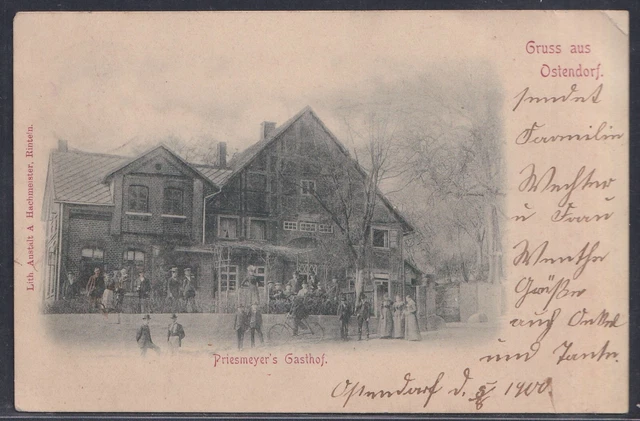 Gruss aus
Ostendorf.
sendet
Familie
Wechter
u Frau
Wwe
Grüße
auch Onkel
und Tante.
Ostendorf d. 5/8 1900.
Priesmeyer's Gasthof.
Lith. Anstalt A Hachmeister, Rinteln.